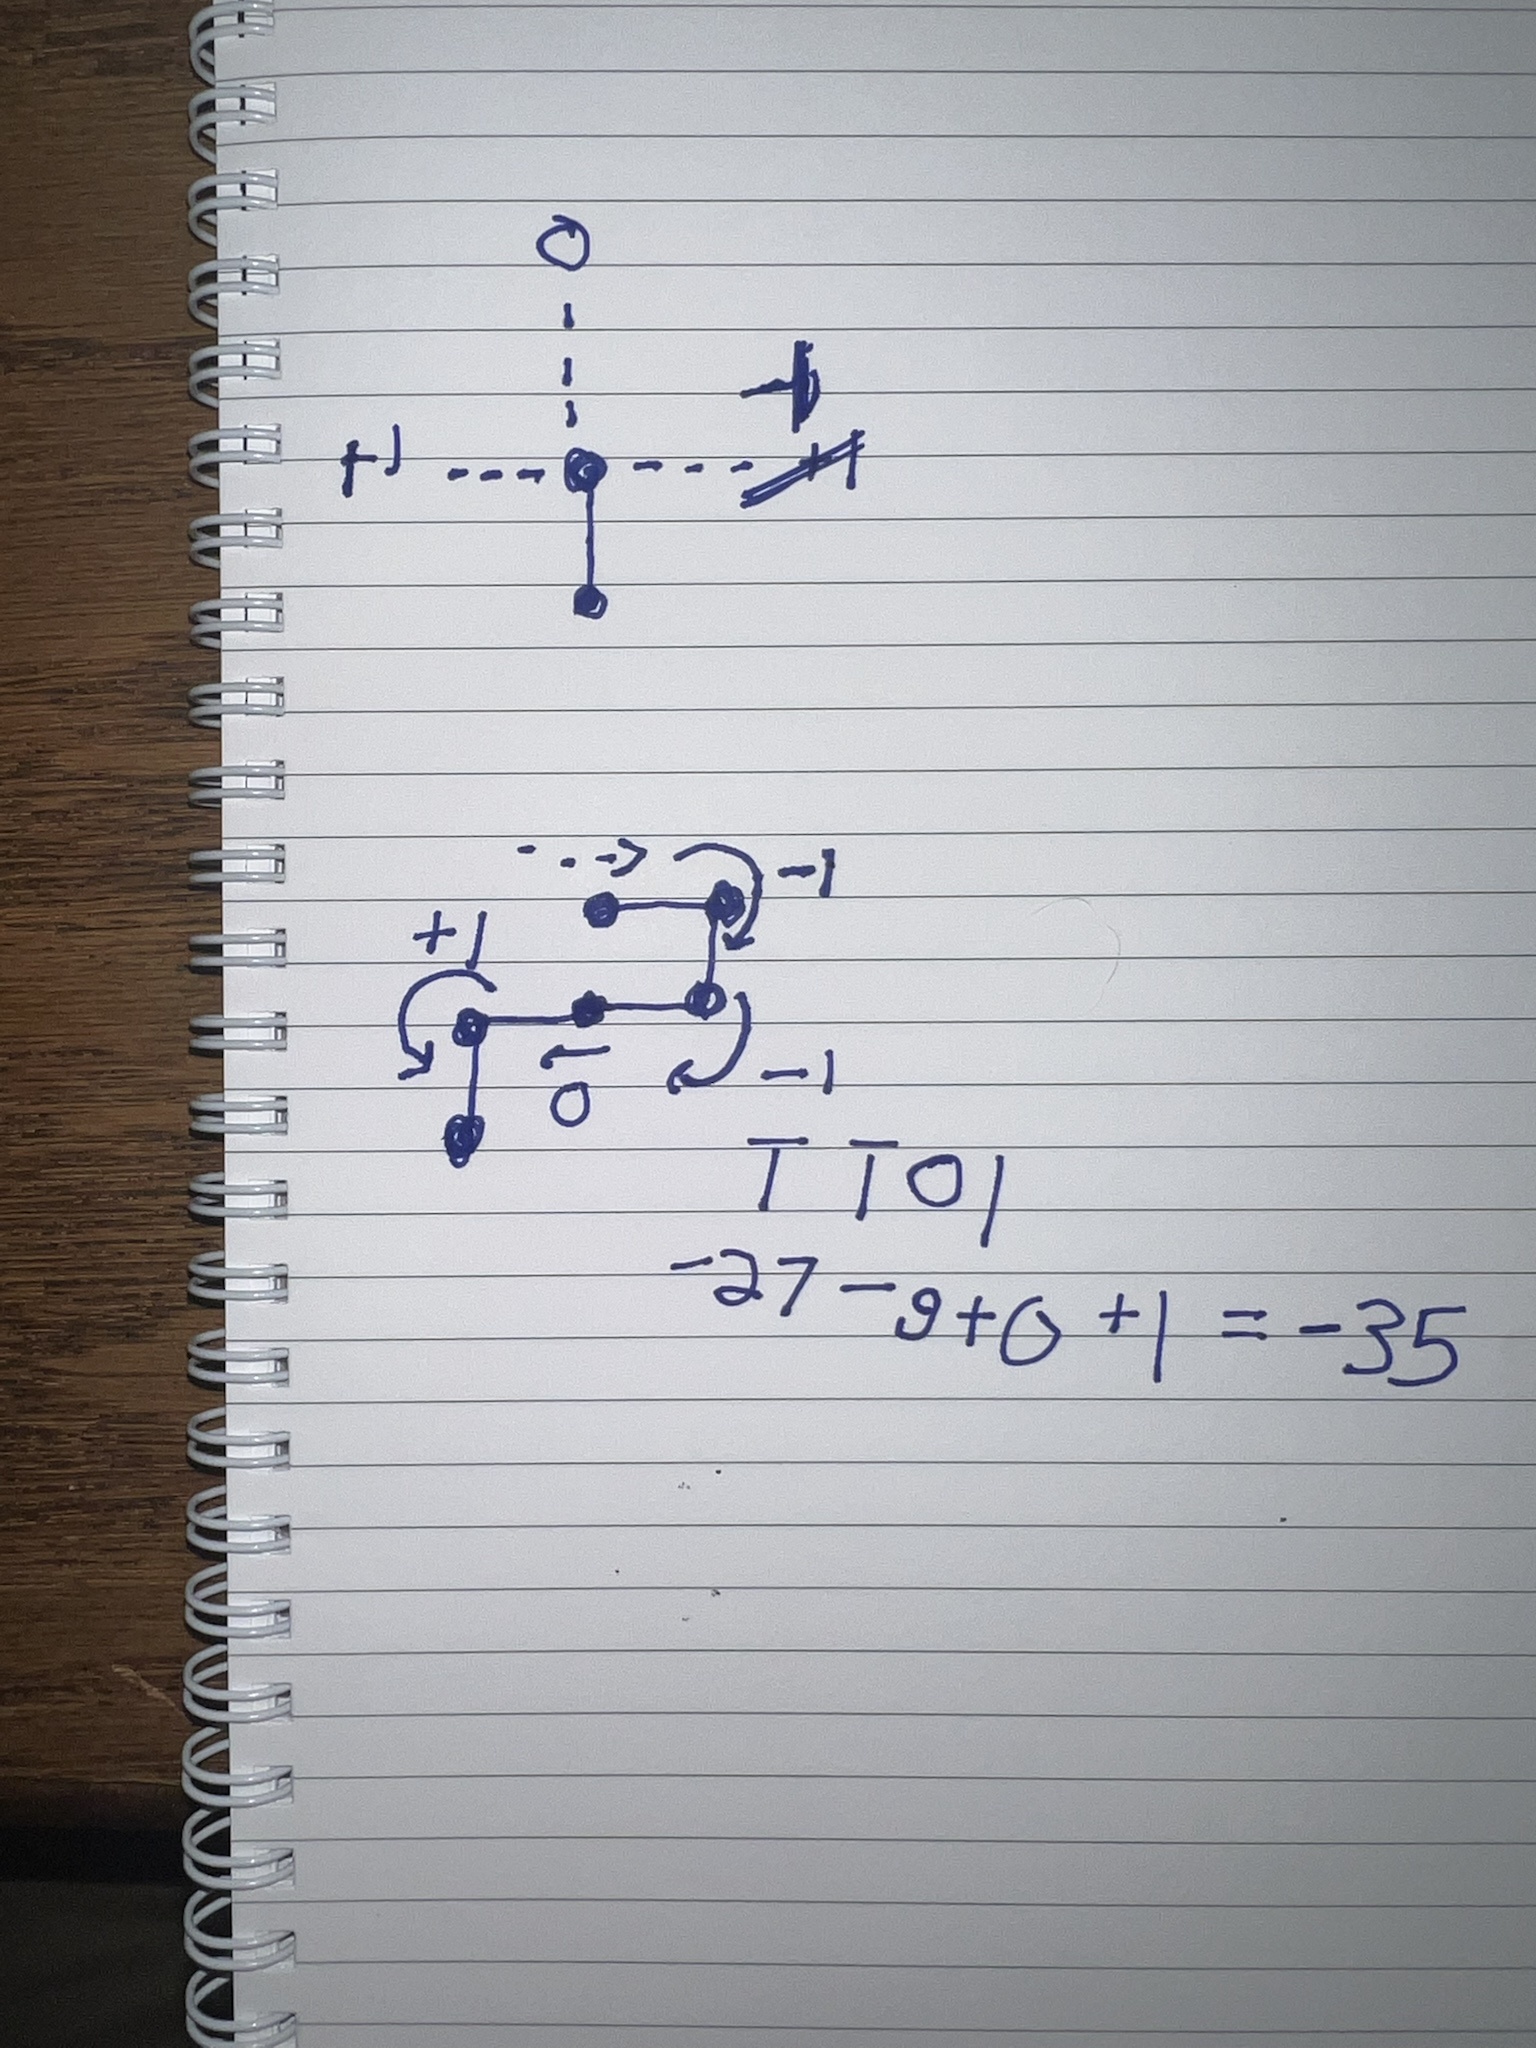 0
-1
+1
-1
+1
0
-1
1̅ 1̅ 0 1
-27 - 9 + 0 + 1 = -35